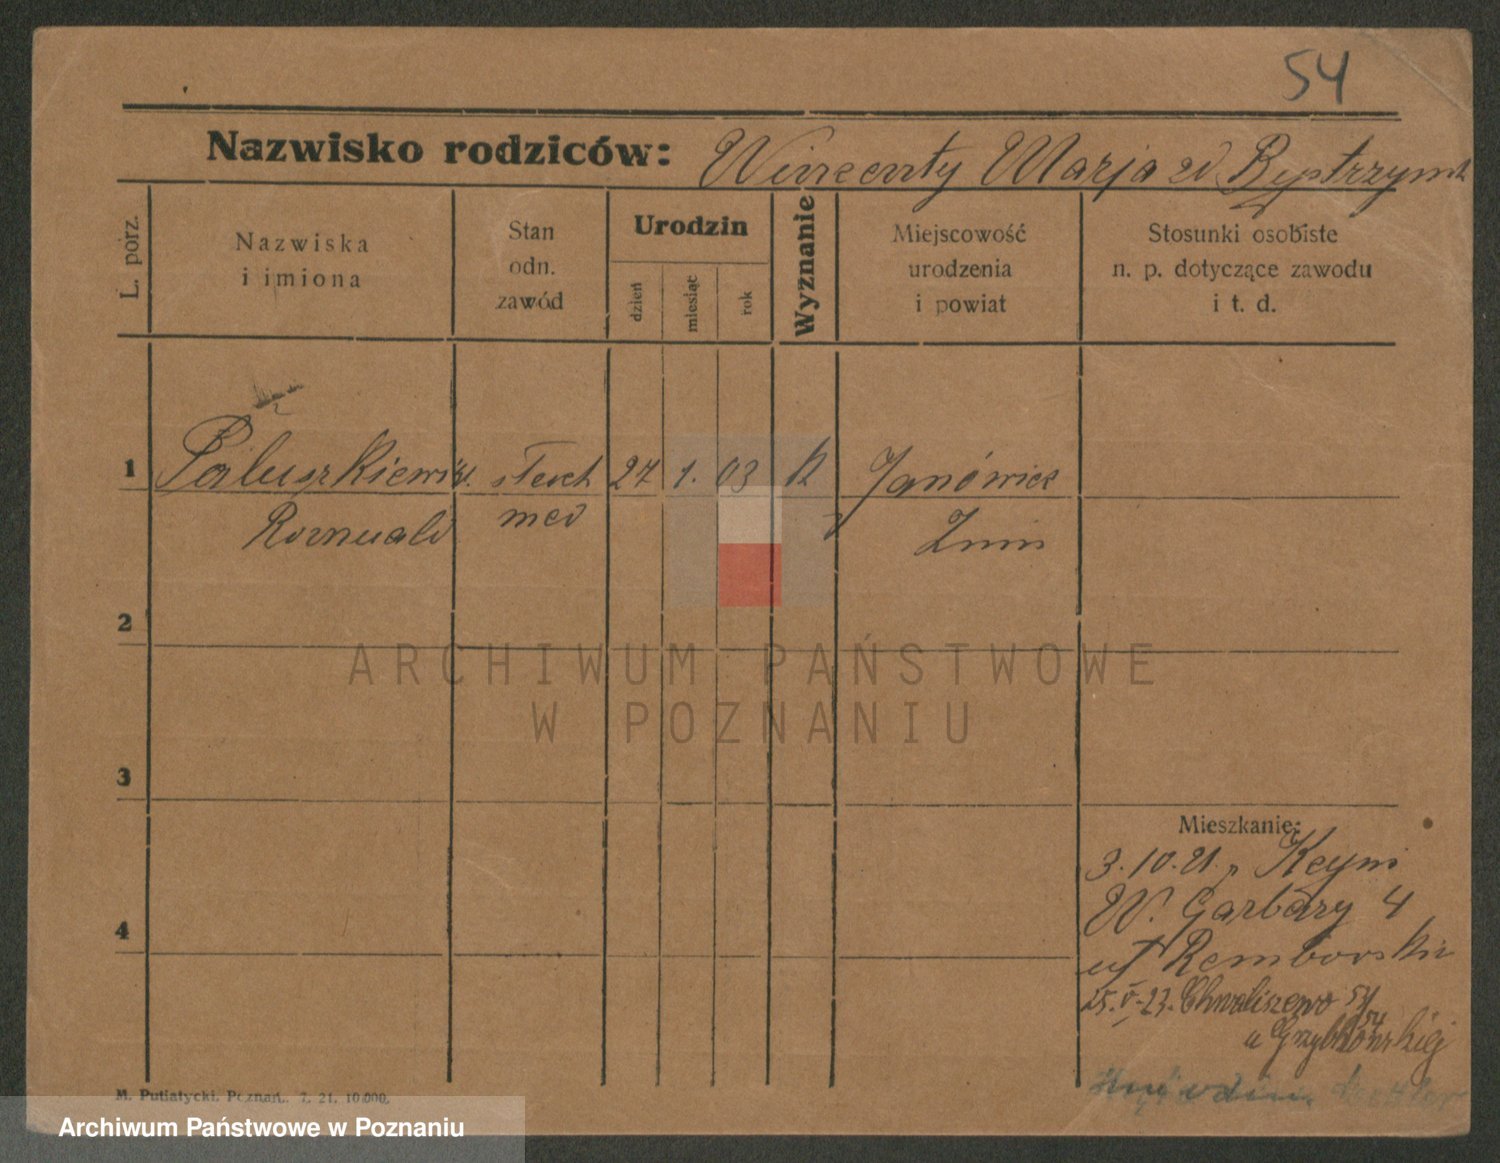 54
Nazwisko rodziców: Wincenty Marja zd Bystrzym
L. porz.
Nazwiska
i imiona
Stan
odn.
zawód
Urodzin
dzień
miesiąc
rok
Wyznanie
Miejscowość
urodzenia
i powiat
Stosunki osobiste
n. p. dotyczące zawodu
i t. d.
1 Paluszkiewicz 27 1. 03 k Janówiec
Romuald med Żnin
2
ARCHIWUM PAŃSTWOWE
W POZNANIU
3
Mieszkanie:
3.10.21. Keym
W. Garbary 4
4
u Remborski
25.V.23. Chwaliszewo 54
u Grzybkowskiej
M. Putiatycki, Poznań. 7. 21. 10000.
Archiwum Państwowe w Poznaniu